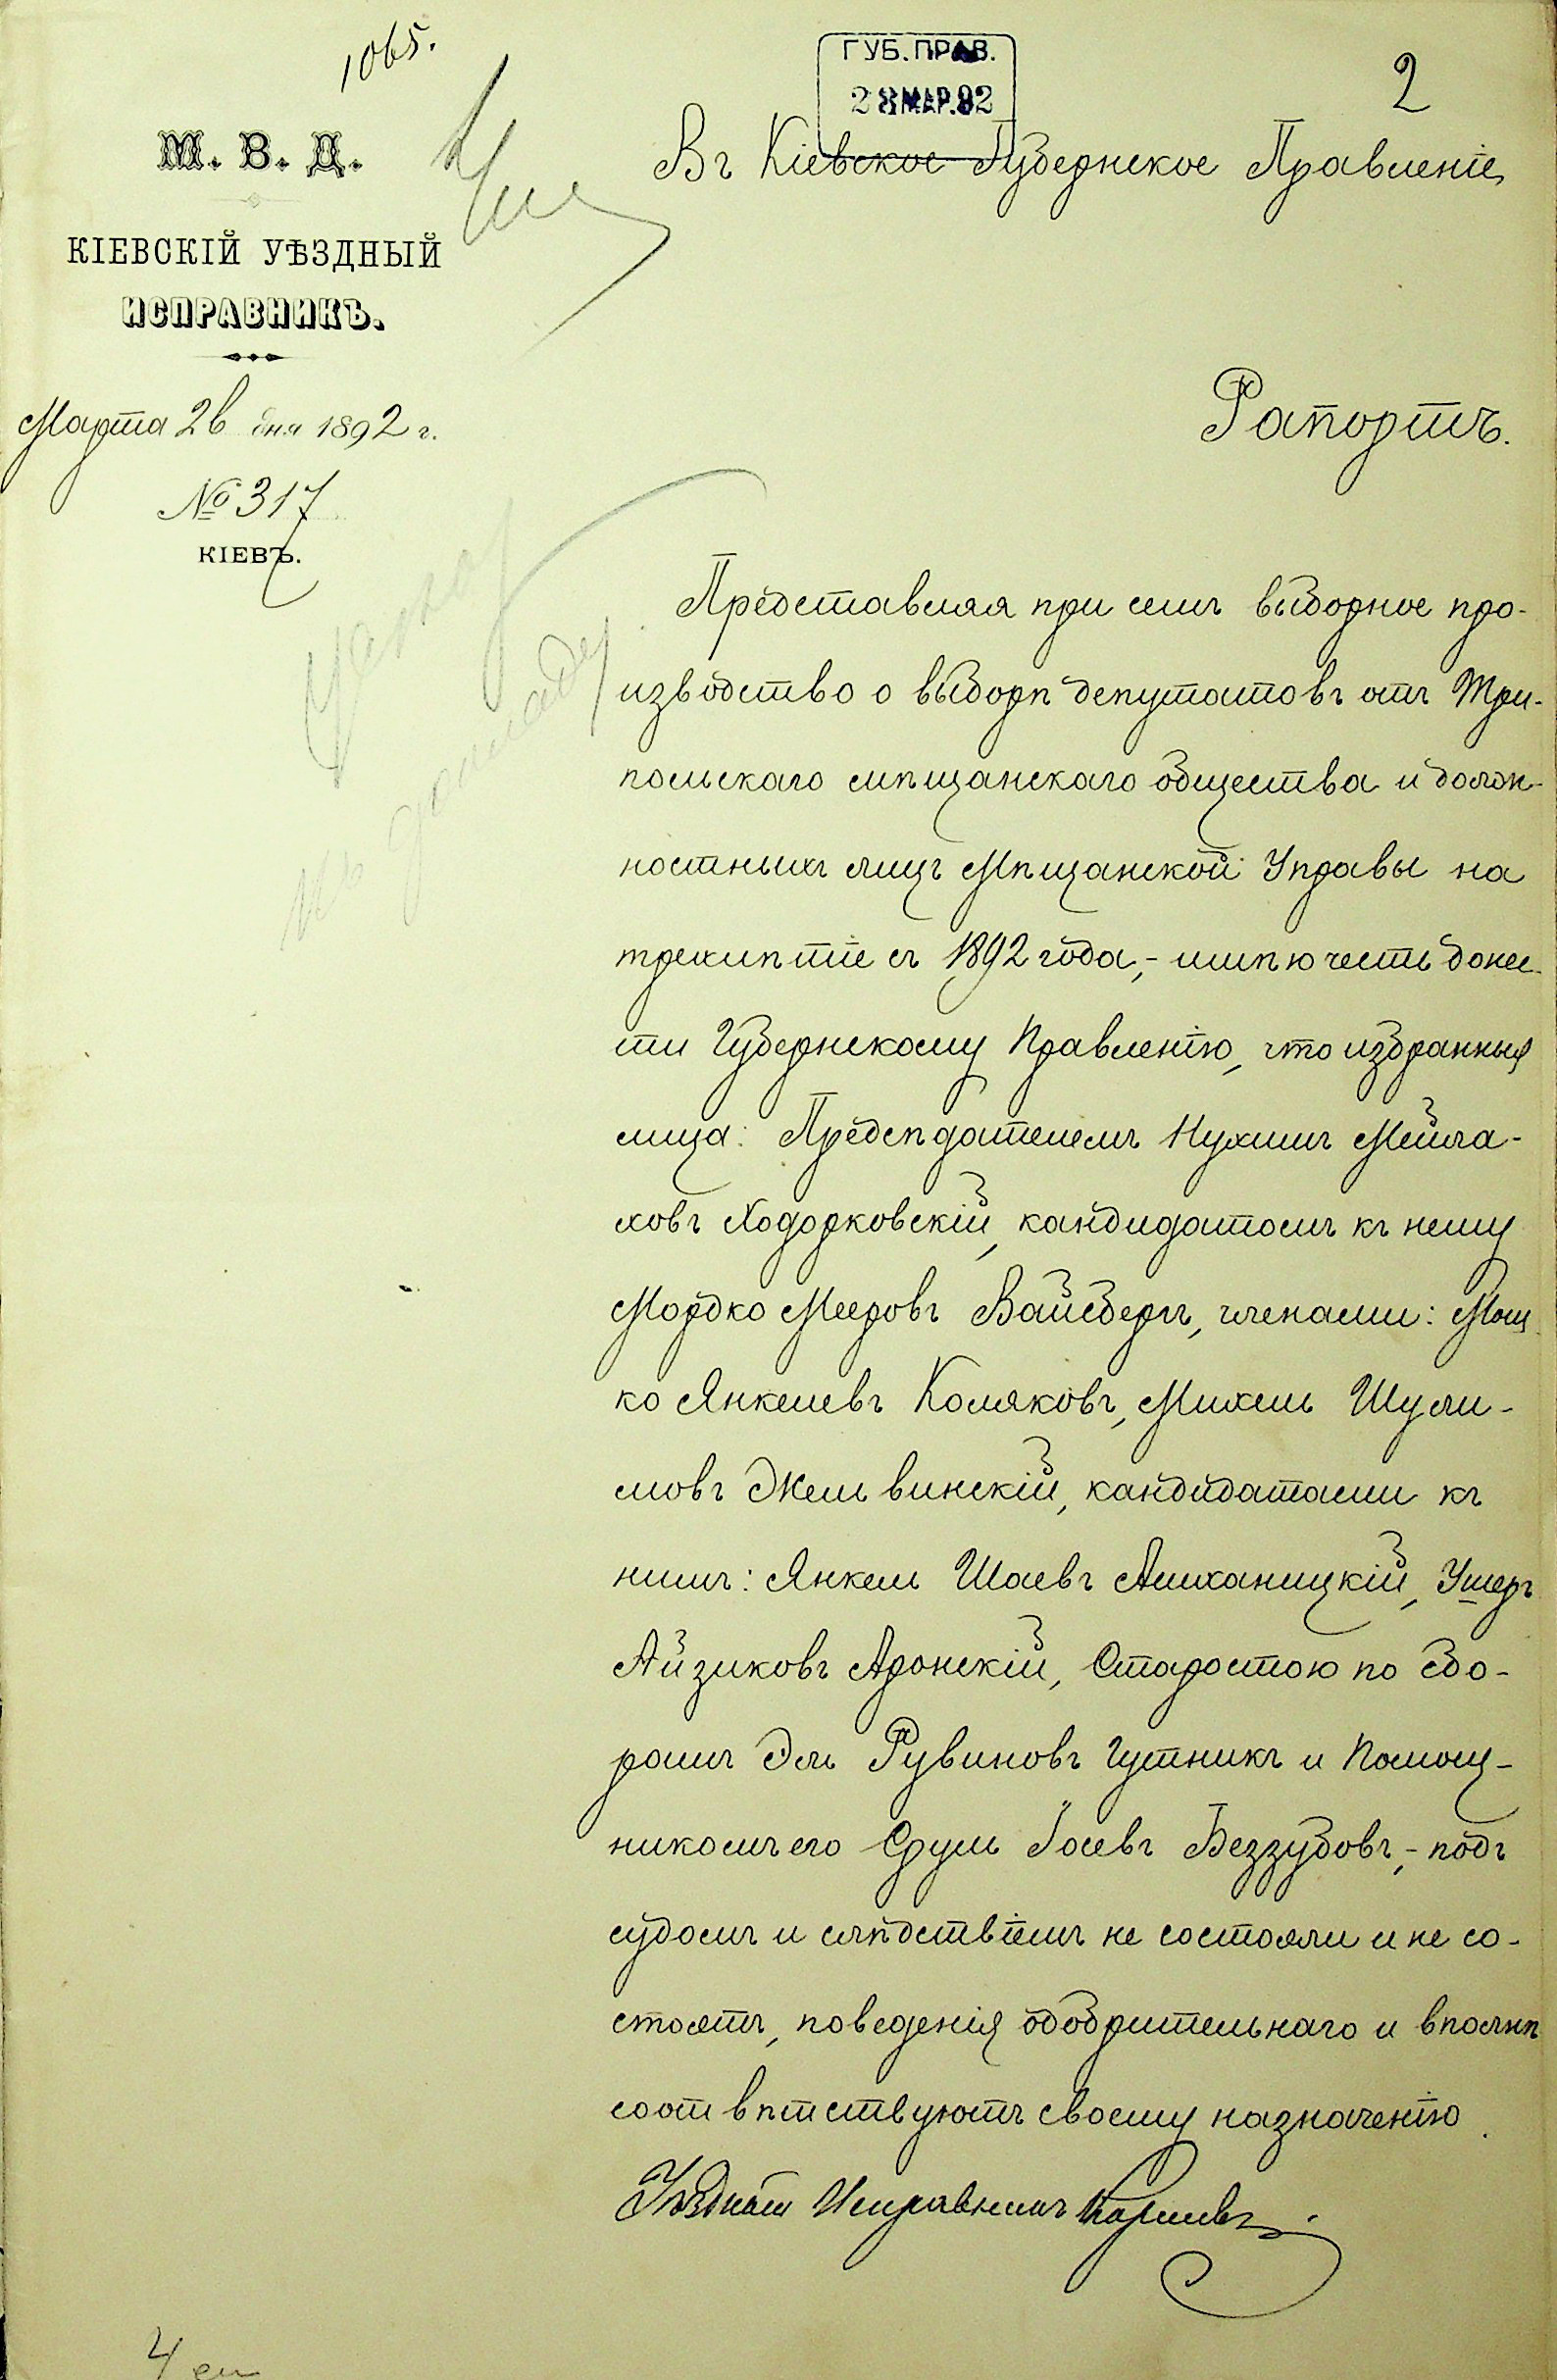 1065.
ГУБ. ПРАВ.
28 МАР. 92
2
М. В. Д.
КІЕВСКІЙ УѢЗДНЫЙ
ИСПРАВНИКЪ.
Марта 26 дня 1892 г.
№ 317
КІЕВЪ.
Въ Кіевское Губернское Правленіе
Рапортъ.
Представляя при семъ выборное про-
изводство о выборѣ депутатовъ отъ Три-
польскаго мѣщанскаго общества и долж-
ностныхъ лицъ Мѣщанской Управы на
трехлѣтіе съ 1892 года,- имѣю честь донес-
ти Губернскому Правленію, что избранныя
лица: Предсѣдателемъ Нухимъ Мейла-
ховъ Ходорковскій, кандидатомъ къ нему
Мордко Мееровъ Вайсбергъ, членами: Мош-
ко Янкелевъ Коляковъ, Михель Шули-
мовъ Жельвинскій, кандидатами къ
нимъ: Янкель Шаевъ Ямханицкій, Ушеръ
Айзиковъ Аронскій, Старостою по сбо-
рамъ Эль Рувиновъ Гутникъ и Помощ-
никомъ его Сруль Іосевъ Беззубовъ,- подъ
судомъ и слѣдствіемъ не состояли и не со-
стоятъ, поведенія одобрительнаго и вполнѣ
соотвѣтствуютъ своему назначенію.
Уѣздный Исправникъ